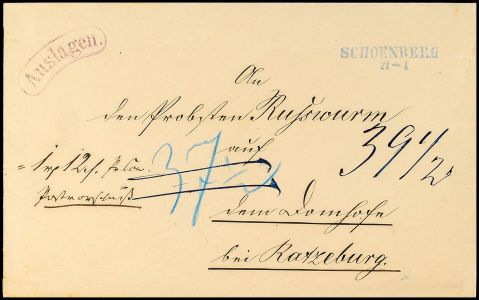 Auslagen.
SCHOENBERG
21-1
An
den Probsten Rußwurm
auf
39 1/2
37 1/2
Postvorschuß
dem Domhofe
bei Ratzeburg.